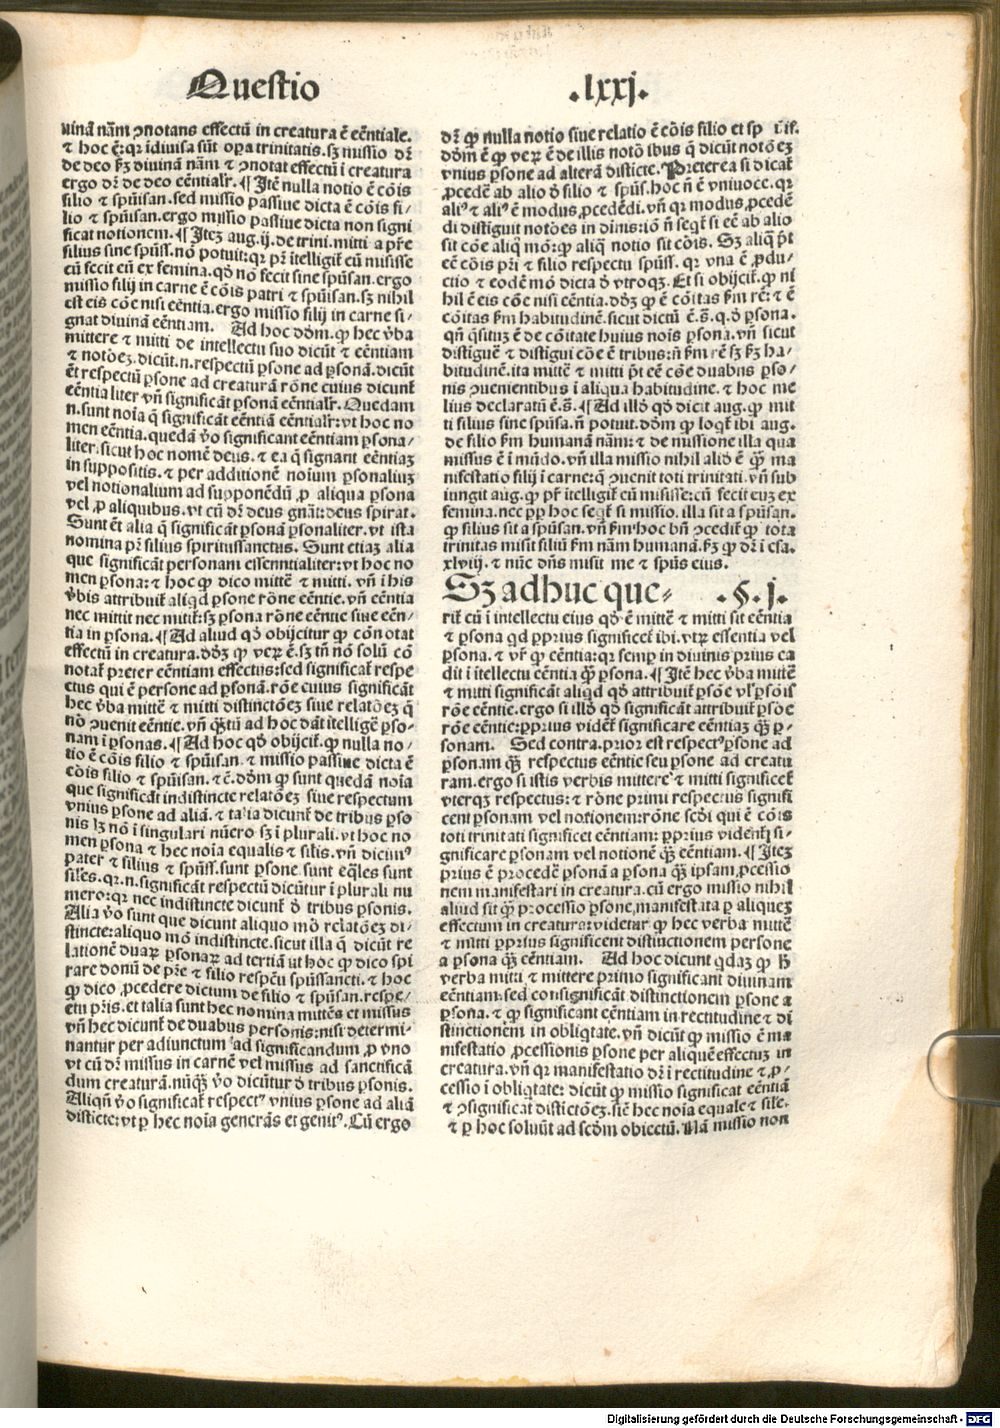 Questio .lxxj.
uinā nām ꝯnotans effectū in creatura ē eēntiale.
⁊ hoc ē: qꝛ īdiuisa sūt oꝑa trinitatis. sꝫ missio dꝛ̄
de deo ẜm diuinā nām ⁊ ꝯnotat effectū ī creatura
ergo dꝛ̄ de deo eēntialr̄. ¶ Itē nulla notio ē cōis
filio ⁊ spūisan. sed missio passiue dicta ē cōis fi⸗
lio ⁊ spūisan. ergo missio passiue dicta non signi
ficat notionem. ¶ Itez aug. ij. de trini. mitti a pr̄e
filius sine spūss. nō potuit: qꝛ pr̄ ītelligit̄ cū misisse
eū fecit eū ex femina. qd̄ nō fecit sine spūsan. ergo
missio filij in carne ē cōis patri ⁊ spūisan. sꝫ nihil
est eis cōe nisi eēntia. ergo missio filij in carne si⸗
gnat diuinā eēntiam. Ad hoc dōm. ꝙ hec v̄ba
mittere ⁊ mitti de intellectu suo dicūt ⁊ eēntiam
⁊ notōeꝫ. dicūt. n. respectū ꝑsone ad ꝑsonā. dicūt
ēt respectū ꝑsone ad creaturā rōne cuius dicunt̄
eēntialiter vn̄ significāt ꝑsonā eēntialr̄. Quedam
n. sunt noīa q̄ significāt eēntiā eēntialr̄: vt hoc no
men eēntia. quedā v̄o significant eēntiam ꝑsona⸗
liter. sicut hoc nomē deus. ⁊ ea q̄ signant eēntiaꝫ
in suppositis. ⁊ per additionē noīum ꝑsonaliuꝫ
vel notionalium ad supponēdū ꝓ aliqua ꝑsona
vel ꝓ aliquibus. vt cū dꝛ̄ deus gnāt: deus spirat.
Sunt ēt alia q̄ significāt ꝑsonā ꝑsonaliter. vt ista
nomina pr̄ filius spiritussanctus. Sunt etiaꝫ alia
que significāt personam essenntialiter: vt hoc no
men ꝑsona: ⁊ hoc ꝙ dico mittē ⁊ mitti. vn̄ ī his
v̄bis attribuit̄ aliqd̄ ꝑsone rōne eēntie. vn̄ eēntia
nec mittit nec mitit̄: sꝫ ꝑsona rōne eēntie siue eēn⸗
tia in ꝑsona. ¶ Ad aliud qd̄ obijcitur ꝙ cōnotat
effectū in creatura. dōꝫ ꝙ veꝝ ē. sꝫ tn̄ nō solū cō
notat̄ preter eēntiam effectus: sed significat̄ respe
ctus qui ē persone ad ꝑsonā. rōe cuius significāt
hec v̄ba mittē ⁊ mitti distinctōeꝫ siue relatōeꝫ q̄
nō ꝯuenit eēntie. vn̄ qꝫtū ad hoc dāt itelligē ꝑso⸗
nam ī ꝑsonas. ¶ Ad hoc qd̄ obijcit̄. ꝙ nulla no⸗
tio ē cōis filio ⁊ spūisan. ⁊ missio passiue dicta ē
cōis filio ⁊ spūisan. ⁊ c̄. dōm ꝙ sunt quedā noīa
que significāt indistincte relatōeꝫ siue respectum
vnius ꝑsone ad aliā. ⁊ talia dicunt̄ de tribus ꝑso
nis lꝫ nō ī singulari nūero sꝫ ī plurali. vt hoc no
men ꝑsona ⁊ hec noīa equalis ⁊ sil̄is. vn̄ dicimꝰ
pater ⁊ filius ⁊ spūss. sunt ꝑsone sunt eq̄les sunt
sil̄es. qꝛ. n. significāt respectū dicūtur ī plurali nu
mero: qꝛ nec indistincte dicunt̄ ð tribus ꝑsonis.
Alia v̄o sunt que dicunt aliquo mō relatōeꝫ di⸗
stincte: aliquo mō indistincte. sicut illa q̄ dicūt re
lationē duaꝝ ꝑsonaꝝ ad tertiā ut hoc ꝙ dico spi
rare donū de pr̄e ⁊ filio respēu spūssancti. ⁊ hoc
ꝙ dico ꝓcedere dictum de filio ⁊ spūsan. respe⸗
ctu pr̄is. et talia sunt hec nomina mittēs et missus
vn̄ hec dicunt̄ de duabus personis: nisi determi⸗
nantur per adiunctum ad significandum ꝓ vno
vt cū dꝛ̄ missus in carnē vel missus ad sanctificā
dum creaturā. nūqꝫ v̄o dicūtur ð tribus ꝑsonis.
Aliqn̄ v̄o significat̄ respectꝰ vnius ꝑsone ad aliā
distincte: vt ꝑ hec noīa generās et genitꝰ. Cū ergo
dꝛ̄ ꝙ nulla notio siue relatio ē cōis filio et sp
dōm ē ꝙ veꝝ ē de illis notōibus q̄ dicūt notōeꝫ
vnius ꝑsone ad alterā disticte. Preterea si dicat̄
ꝓcedē ab alio ð filio ⁊ spūs. hoc n̄ ē vniuoce. qꝛ
aliꝰ ⁊ aliꝰ ē modus ꝓcedēdi. vn̄ qꝛ modus ꝓcedē
di distiguit notōes in diuinis: iō n̄ seqt̄ si eē ab alio
sit cōe aliq̄ mō: ꝙ aliq̄ notio sit cōis. Sꝫ aliq̄ p̄t
eē cōis pr̄i ⁊ filio respectu spūss. qꝛ vna ē ꝓdu⸗
ctio ⁊ eodē mō dicta ð vtroqꝫ. Et si obijcit̄. ꝙ ni
hil ē eis cōe nisi eēntia. dōꝫ ꝙ ē cōitas ẜm rē: ⁊ ē
cōitas ẜm habitudinē. sicut dictū ē. s̄. q. ð ꝑsona.
qn̄ q̄situꝫ ē de cōitate huius nois ꝑsona. vn̄ sicut
distiguē ⁊ distigui cōe ē tribus: n̄ ẜm rē sꝫ ẜm ha⸗
bitudinē. ita mittē ⁊ mitti p̄t eē cōe duabus ꝑso⸗
nis ꝯuenientibus ī aliqua habitudine. ⁊ hoc me
lius declaratū ē. s̄. ¶ Ad illō qd̄ dicit aug. ꝙ mit
ti filius sine spūsa. n̄ potuit. dōm ꝙ loqt̄ ibi aug.
de filio ẜm humanā nām: ⁊ de missione illa qua
missus ē ī mūdo. vn̄ illa missio nihil aliō ē qꝫ ma
nifestatio filij ī carne: q̄ ꝯuenit toti trinitati. vn̄ sub
iungit aug. ꝙ pr̄ itelligit̄ cū misisse: cū fecit euꝫ ex
femina. nec ꝓp̄ hoc seqt̄ si missio. illa sit a spūsan.
ꝙ filius sit a spūsan. vn̄ ẜm hoc bn̄ ꝯcedit̄ ꝙ tota
trinitas misit filiū ẜm nām humanā. ẜm ꝙ dꝛ̄ ī esa.
xlviij. ⁊ nūc dn̄s misit me ⁊ spūs eius.
Sꝫ adhuc que⸗ .§. j.
rit̄ cū ī intellectu eius qd̄ ē mittē ⁊ mitti sit eēntia
⁊ ꝑsona qd ꝓprius significet̄ ibi. vtꝝ essentia vel
ꝑsona. ⁊ vr̄ ꝙ eēntia: qꝛ semꝑ in diuinis prius ca
dit ī itellectu eēntia qꝫ ꝑsona. ¶ Itē hec v̄ba mittē
⁊ mitti significāt aliqd qd̄ attribuit̄ ꝑsōe vl̓ ꝑsōis
rōe eēntie. ergo si illō qd̄ significāt attribuit̄ ꝑsōe
rōe eēntie: ꝓprius videt̄ significare eēntiaꝫ qꝫ ꝑ⸗
sonam. Sed contra. prior est respectꝰ ꝑsone ad
ꝑsonam qꝫ respectus eēntie seu ꝑsone ad creatu
ram. ergo si istis verbis mittere ⁊ mitti significet̄
vterqꝫ respectus: ⁊ rōne primi respectus signifi
cent ꝑsonam vel notionem: rōne scdī qui ē cōis
toti trinitati significet eēntiam: ꝓprius vident̄ si⸗
gnificare ꝑsonam vel notionē qꝫ eēntiam. ¶ Iteꝫ
prius ē procedē ꝑsonā a ꝑsona qꝫ ipsam ꝓcessio
nem manifestari in creatura. cū ergo missio nihil
aliud sit qꝫ processio ꝑsone manifestata ꝑ aliqueꝫ
effectum in creatura: videtur ꝙ hec verba mittē
⁊ mitti ꝓprius significent distinctionem persone
a ꝑsona qꝫ eēntiam. Ad hoc dicunt qdaꝫ ꝙ h̄
verba mitti ⁊ mittere primo significant diuinam
eēntiam: sed consignificāt distinctionem ꝑsone a
ꝑsona. ⁊ ꝙ significant eēntiam in rectitudine ⁊ di
stinctionem in obliqtate. vn̄ dicūt ꝙ missio ē ma
nifestatio ꝓcessionis ꝑsone per aliquē effectuꝫ in
creatura. vn̄ qꝛ manifestatio dꝛ̄ ī rectitudine ⁊ ꝓ⸗
cessio ī obliqtate: dicūt ꝙ missio significat eēntiā
⁊ ꝯsignificat distictōeꝫ. sic̄ hec noīa equale ⁊ sil̄e.
⁊ ꝑ hoc soluūt ad scdm obiectū. Nā missio non
Digitalisierung gefördert durch die Deutsche Forschungsgemeinschaft - DFG